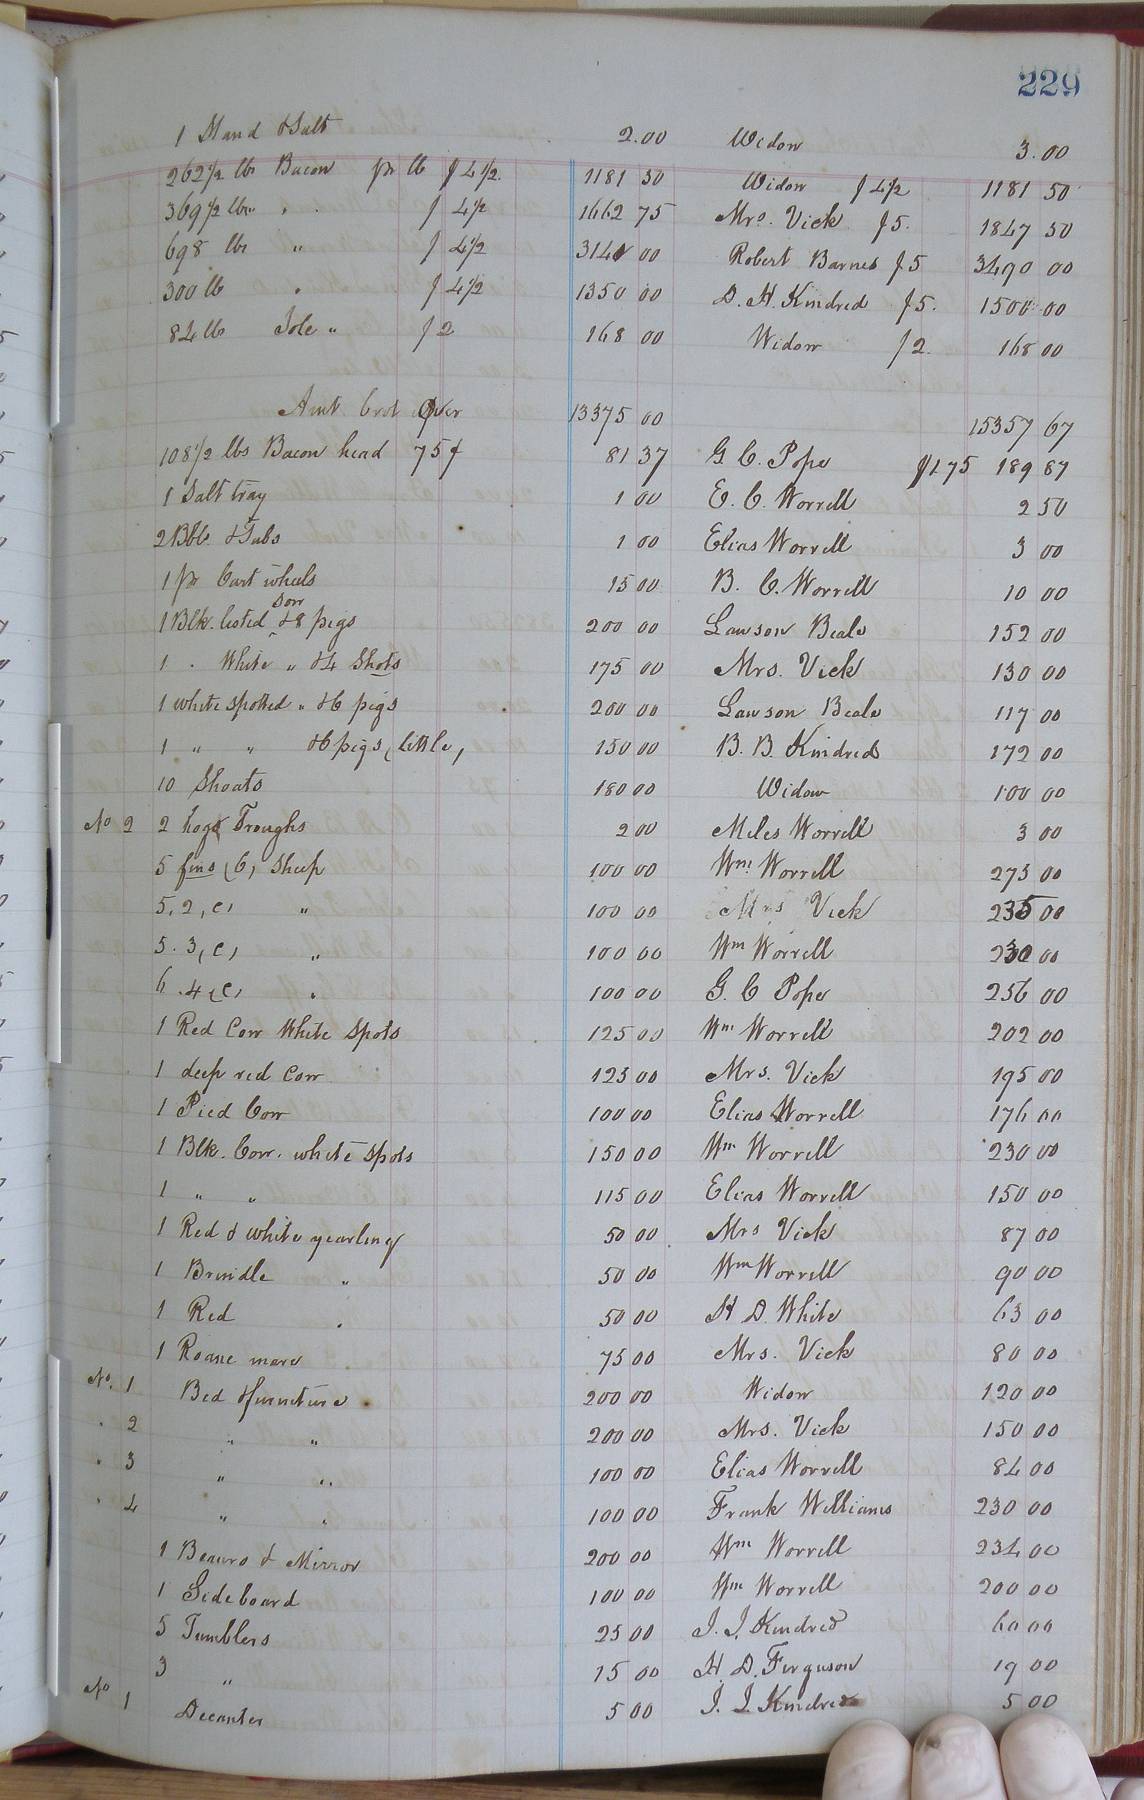 229
1 Stand & Salt 2.00 Widow 3.00
262 1/2 lbs Bacon pr lb $ 4 1/2. 1181 50 Widow $ 4 1/2 1181 50
369 1/2 lbs " . $ 4 1/2 1662 75 Mrs. Vick $5. 1847 50
698 lbs " $ 4 1/2 3141 00 Robert Barnes $5 3490 00
300 lb " $ 4 1/2 1350 00 D. H. Kindred $5. 1500 00
84 lb Jole " $ 2 168 00 Widow $2. 168 00
Amt Brot Over 13375 00 15357 67
108 1/2 lbs Bacon head 75¢ 81 37 G. C. Pope $1.75 189 87
1 Salt tray 1 00 E. C. Worrell 2 50
2 Bbls & Tubs 1 00 Elias Worrell 3 00
1 pr Cart wheels 15 00 B. C. Worrell 10 00
1 Blk. listed Sow & 8 pigs 200 00 Lawson Beale 152 00
1 . White " & 4 Shots 175 00 Mrs. Vick 130 00
1 white spotted " & 6 pigs 200 00 Lawson Beale 117 00
1 " " & 6 pigs (little) 150 00 B. B. Kindred 172 00
10 Shoats 180 00 Widow 100 00
No 2 2 hog Troughs 2 00 Miles Worrell 3 00
5 fins (C) Sheep 100 00 Wm. Worrell 275 00
5. 2, C) " 100 00 Mrs Vick 235 00
5. 3, C) " 100 00 Wm Worrell 230 00
6 . 4 (C) " 100 00 G. C Pope 256 00
1 Red Cow White Spots 125 00 Wm Worrell 202 00
1 deep red Cow 125 00 Mrs. Vick 195 00
1 Pied Cow 100 00 Elias Worrell 176 00
1 Blk. Cow. white spots 150 00 Wm Worrell 230 00
1 " " 115 00 Elias Worrell 150 00
1 Red & white yearling 50 00 Mrs Vick 87 00
1 Brindle " 50 00 Wm Worrell 90 00
1 Red " 50 00 H D. White 63 00
1 Roane mare 75 00 Mrs. Vick 80 00
No. 1 Bed & furniture 200 00 Widow 120 00
" 2 " " 200 00 Mrs. Vick 150 00
" 3 " " 100 00 Elias Worrell 84 00
" 4 " " 100 00 Frank Williams 230 00
1 Beauro & Mirror 200 00 Wm Worrell 234 00
1 Sideboard 100 00 Wm Worrell 200 00
5 Tumblers 25 00 J. J. Kindred 60 00
3 " 15 00 H D. Ferguson 19 00
No 1 Decanter 5 00 J. J. Kindred 5 00